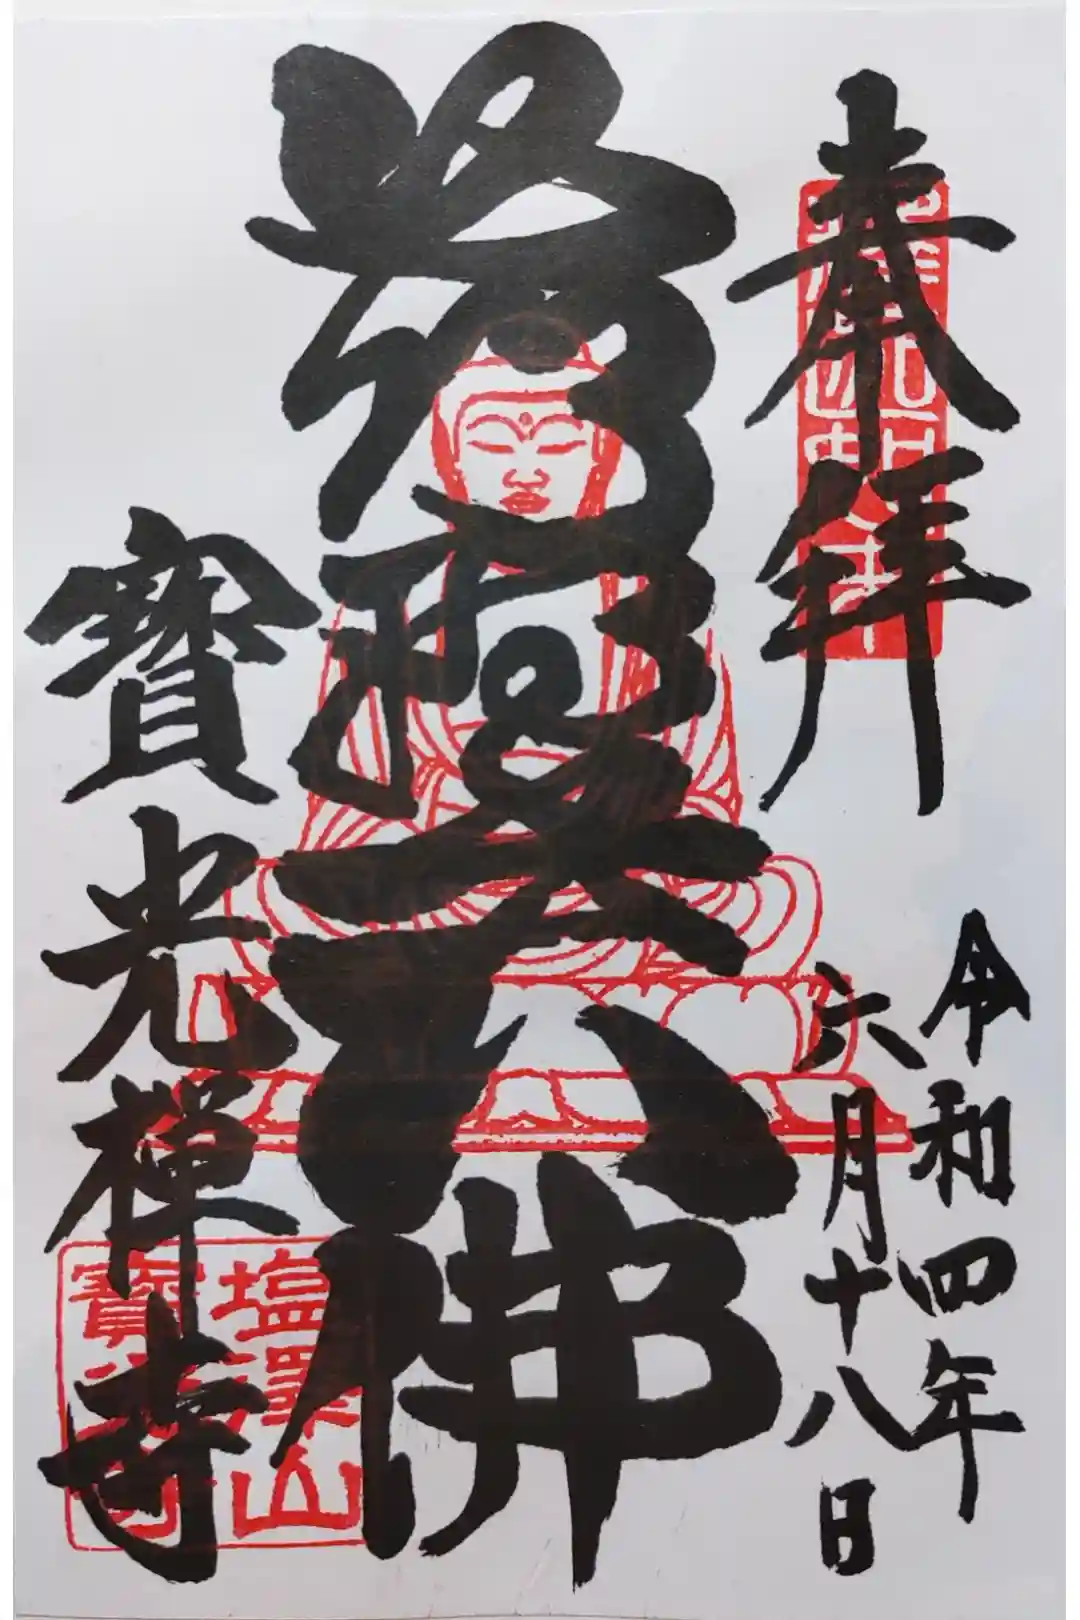 奉拝
令和四年
六月十八日
鹿野大佛
寶光禅寺
塩澤山
寶光寺